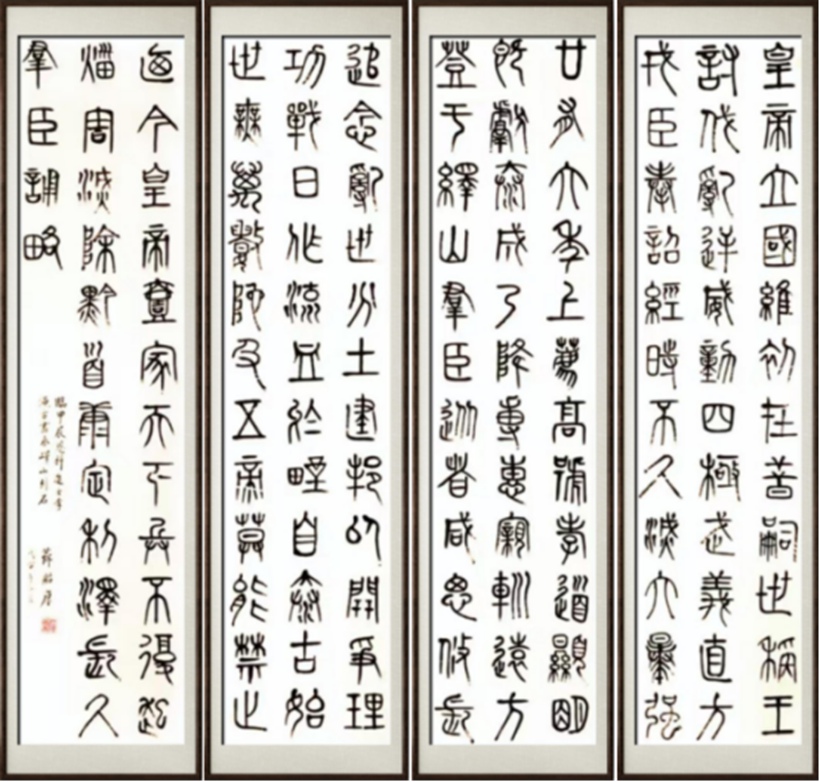 皇帝立國維初在昔嗣世稱王
討伐亂逆威動四極武義直方
戎臣奉詔經時不久滅六暴强
廿有六年上薦高號孝道顯明
既獻泰成乃降專惠親巡遠方
登于繹山羣臣從者咸思攸長
追念亂世分土建邦以開爭理
功戰日作流血於野自泰古始
世無萬數陀及五帝莫能禁止
迺今皇帝壹家天下兵不復起
災害滅除黔首康定利澤長久
羣臣誦略